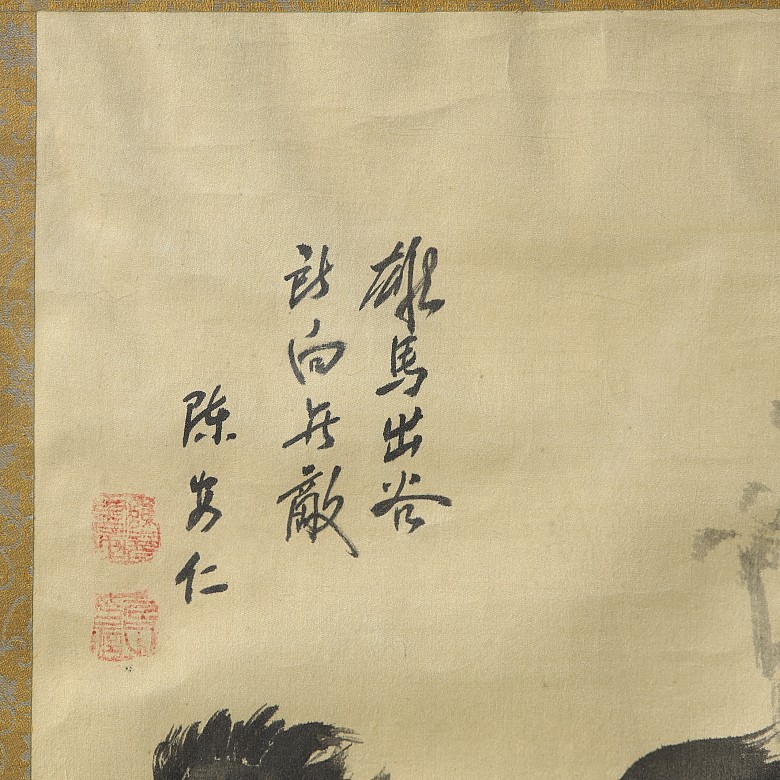 雄馬出谷
所向無敵
陳安仁